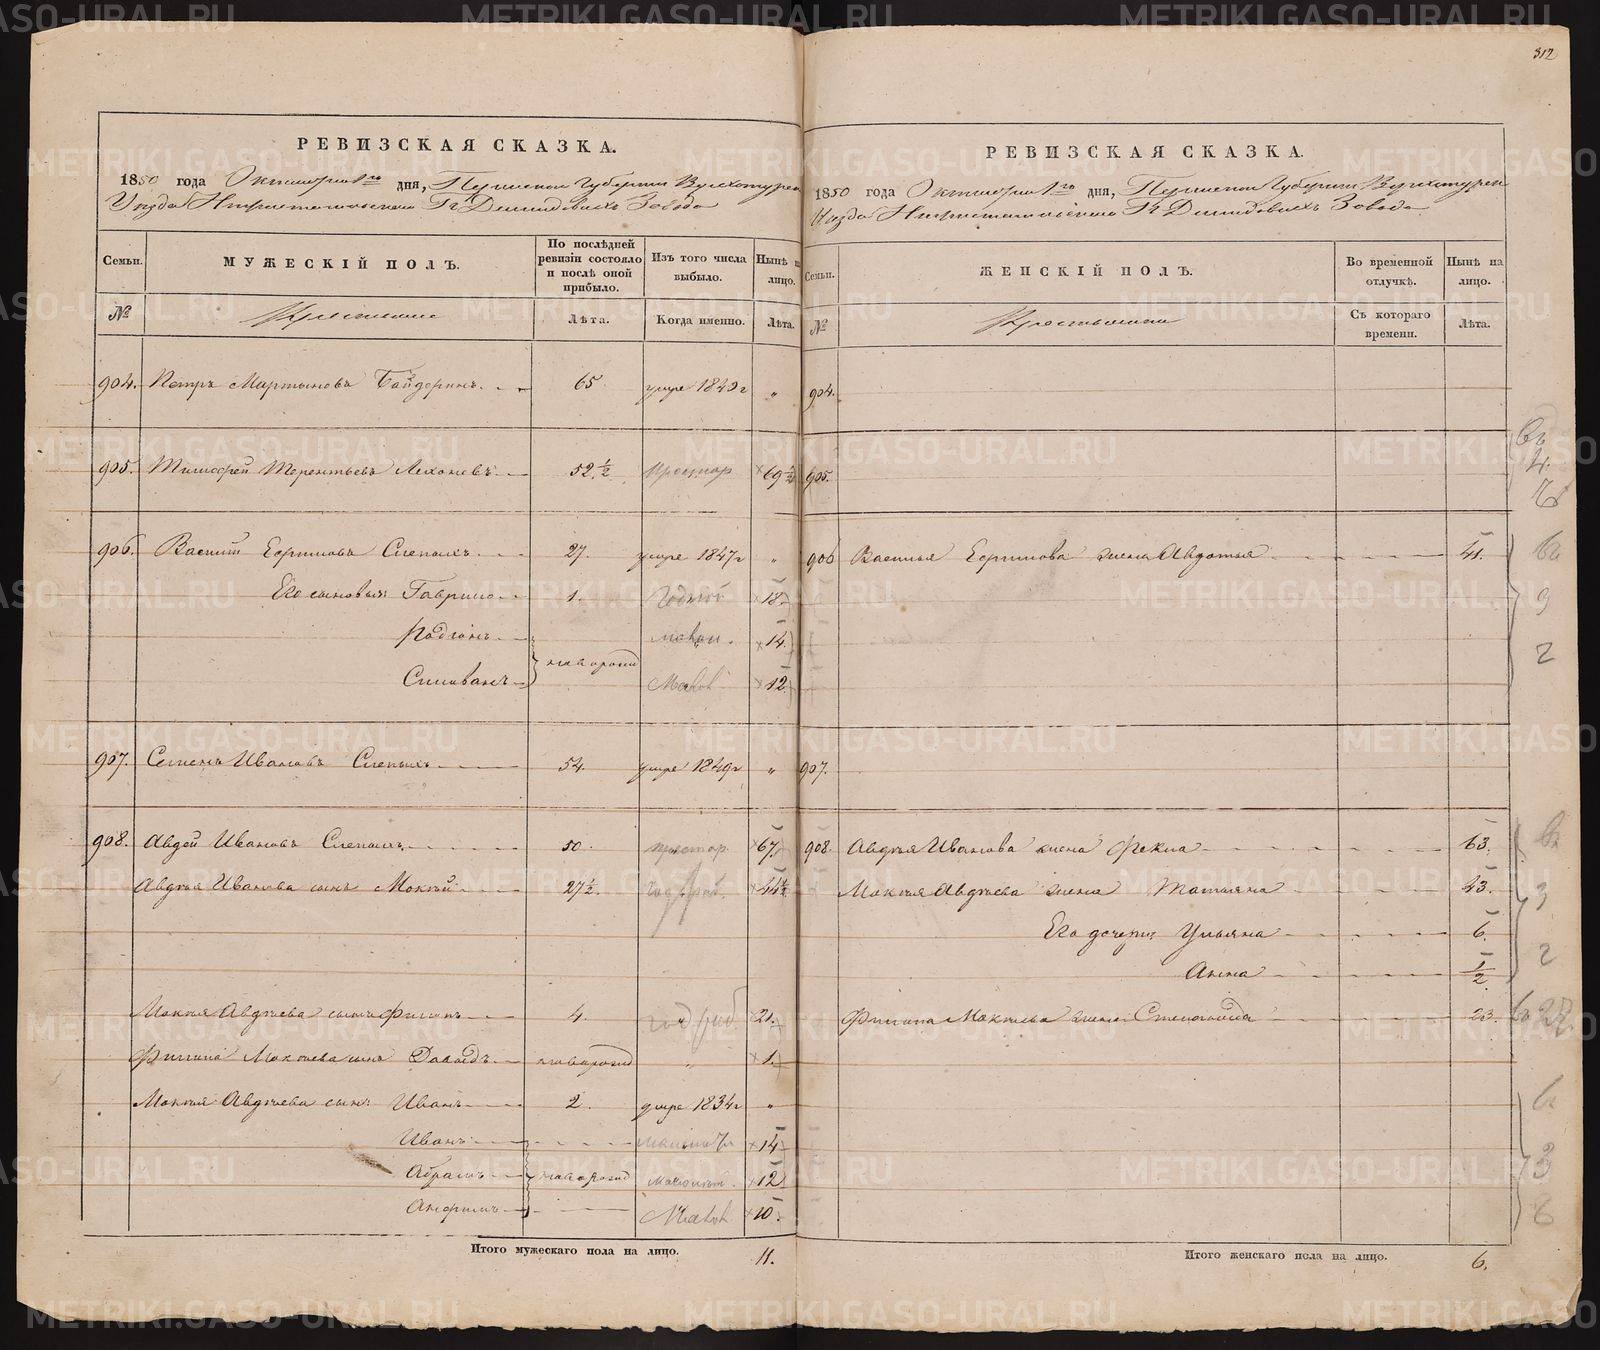 312
РЕВИЗСКАЯ СКАЗКА.
1850 года Октября 1го дня, Пермской Губернии Верхотурск
Уезда Нижнетагильского Гг Демидовыхъ Завода
Семьи.
МУЖЕСКІЙ ПОЛЪ.
По послѣдней ревизіи состояло и послѣ оной прибыло.
Изъ того числа выбыло.
Нынѣ на лицо.
№
Крестьяне
Лѣта.
Когда именно.
Лѣта.
904. Петръ Мартыновъ Байдеринъ. 65 умре 1849 г „
905. Тимофей Терентьевъ Лехоневъ 52 ½ престар ×69 ½
906. Василій Ефимовъ Слепыхъ. 27. умре 1847 г „
Его сыновья: Гаврило 1. Годной ×18
Родіонъ малол. ×14
новорожд
Силованъ Малол ×12
907. Семенъ Ивановъ Слепыхъ 54. умре 1849 г „
908. Авдей Ивановъ Слепыхъ 50. престар. ×67
Авдея Иванова сынъ Мокѣй 27 ½. ×44 ½
Мокѣя Авдѣева сынъ Филипъ 4. ×21.
Филипа Мокѣева сынъ Давыдъ новорожд „ ×1.
Мокѣя Авдѣева сынъ Иванъ 2. умре 1834 г „
Иванъ ×14
Абрамъ новорожд малолѣт. ×12
Анфимъ Малол ×10.
Итого мужескаго пола на лицо. 11.
РЕВИЗСКАЯ СКАЗКА.
1850 года Октября 1го дня, Пермской Губерніи Верхотурск
Уезда Нижнетагильского Гг Демидовыхъ Завода
Семьи.
ЖЕНСКІЙ ПОЛЪ.
Во временной отлучкѣ.
Нынѣ на лицо.
№
Крестьянки
Съ котораго времени.
Лѣта.
904.
905.
906 Василья Ефимова жена Авдотья 41.
907.
908. Авдѣя Иванова жена Фекла 63.
Мокѣя Авдѣева жена Татьяна 43.
Его дочери: Ульяна 6.
Анна ½
Филипа Мокѣева жена Степанида 23.
Итого женскаго пола на лицо. 6.
METRIKI.GASO-URAL.RU